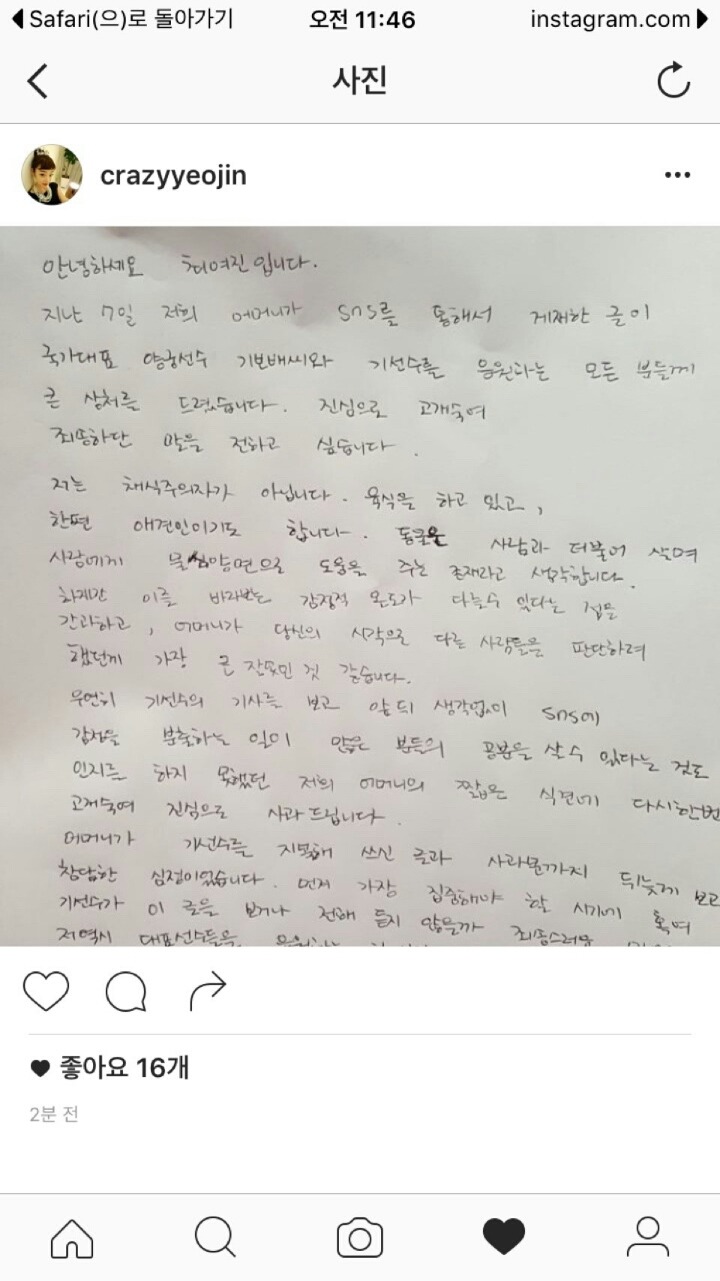 Safari(으)로 돌아가기 오전 11:46 instagram.com
사진
crazyyeojin
안녕하세요 최여진입니다.
지난 7일 저희 어머니가 SNS를 통해서 게재한 글이
국가대표 양궁선수 기보배씨와 기선수를 응원하는 모든 분들께
큰 상처를 드렸습니다. 진심으로 고개숙여
죄송하단 말을 전하고 싶습니다.
저는 채식주의자가 아닙니다. 육식을 하고 있고,
한편 애견인이기도 합니다. 동물은 사람과 더불어 살며
사람에게 물심양면으로 도움을 주는 존재라고 생각합니다.
하지만 이를 바라보는 감정적 온도가 다를수 있다는 점을
간과하고, 어머니가 당신의 시각으로 다른 사람들을 판단하려
했던게 가장 큰 잘못인 것 같습니다.
우연히 기선수의 기사를 보고 앞뒤 생각없이 SNS에
감정을 분출하는 일이 많은 분들의 공분을 살수 있다는 것도
인지를 하지 못했던 저희 어머니의 짧은 식견에 다시한번
고개숙여 진심으로 사과드립니다.
어머니가 기선수를 지목해 쓰신 글과 사과문까지 뒤늦게 보고
참담한 심정이었습니다. 먼저 가장 집중해야 할 시기에 혹여
기선수가 이 글을 보거나 전해 듣지 않을까 죄송스러운
저역시 대표선수들을 응원하는
좋아요 16개
2분 전